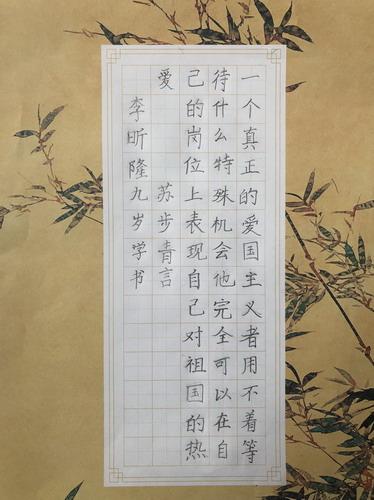 一个真正的爱国主义者用不着等
待什么特殊机会他完全可以在自
己的岗位上表现自己对祖国的热
爱 苏步青言
李昕隆九岁学书